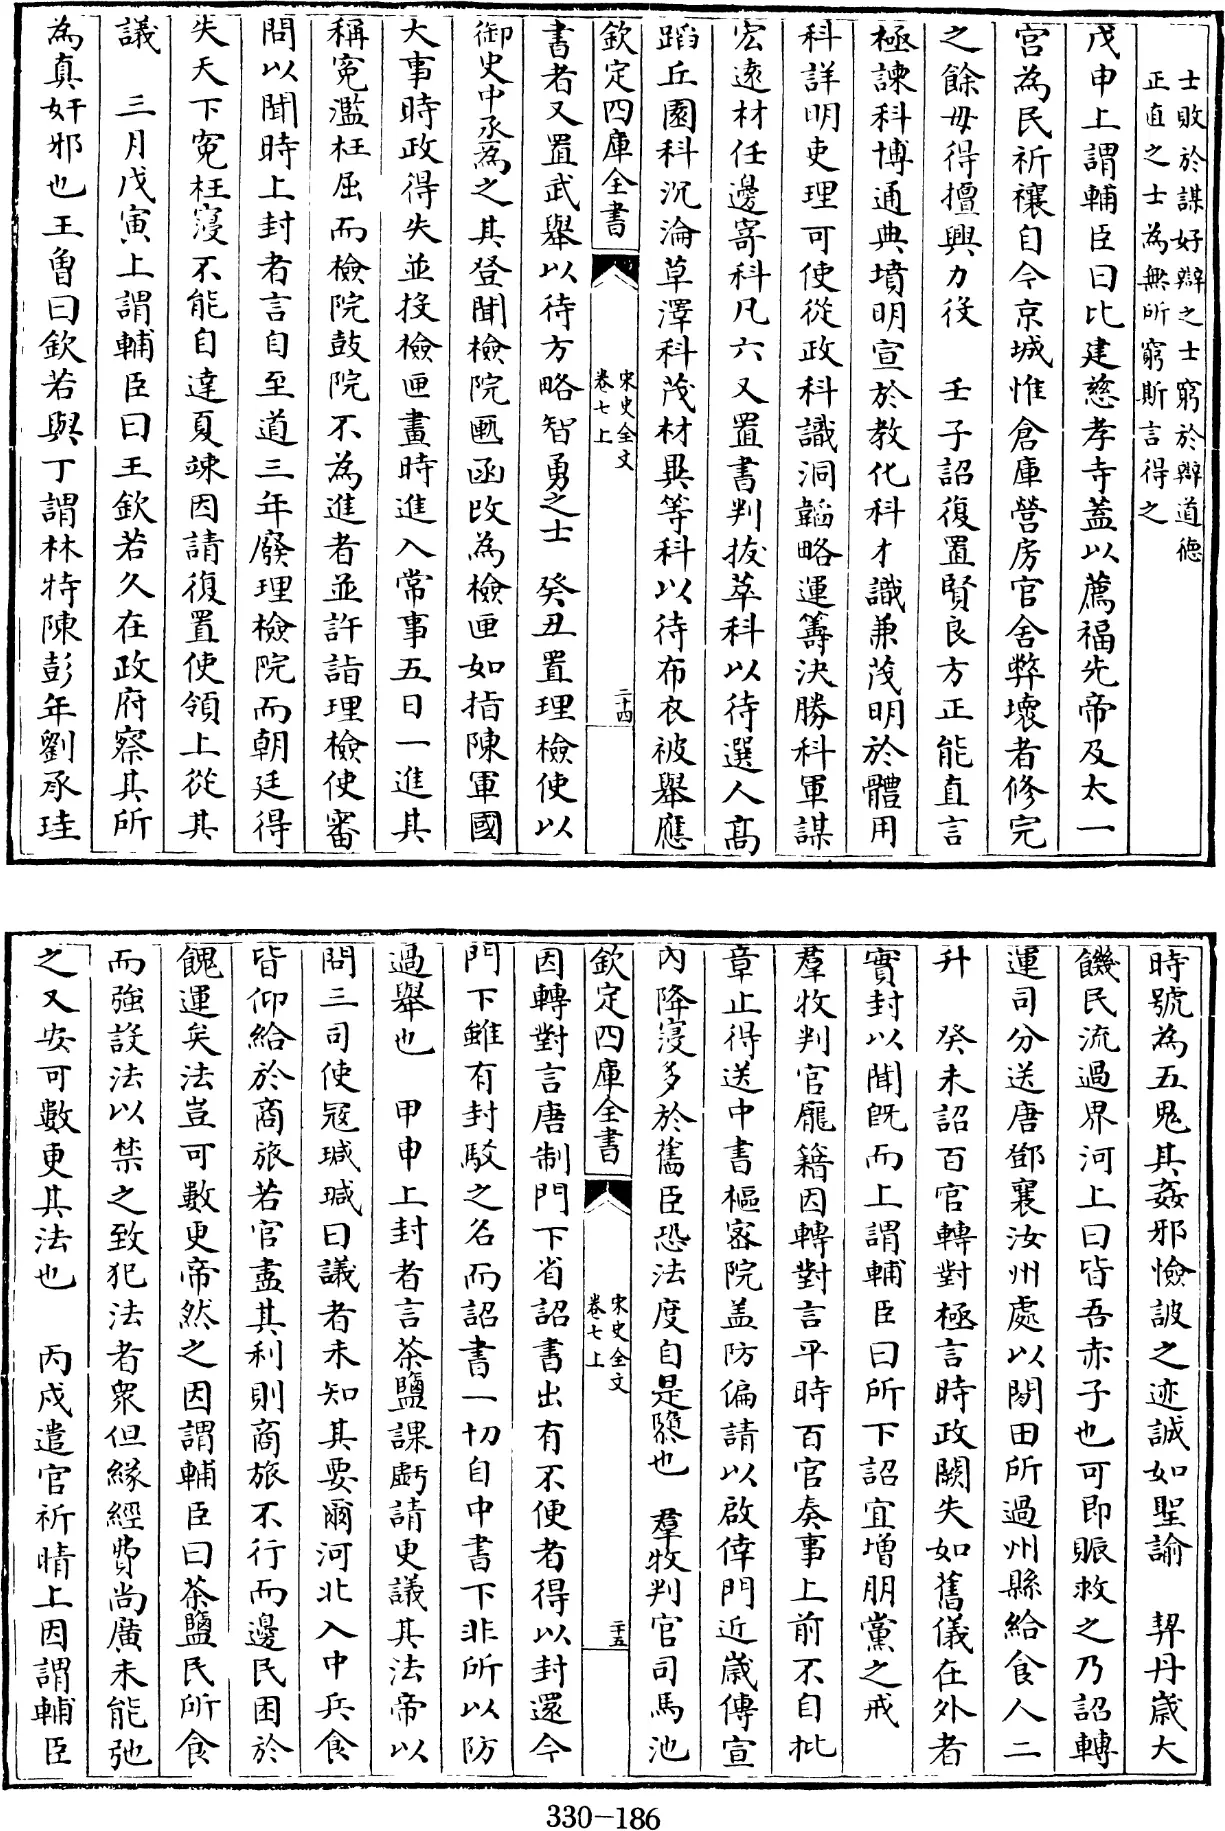 士敗於謀好辯之士窮於辯道德
正直之士為無所窮斯言得之
戊申上謂輔臣曰比建慈孝寺蓋以薦福先帝及太一
宫為民祈禳自今京城惟倉庫營房官舍弊壞者修完
之餘毋得擅興力役　壬子詔復置賢良方正能直言
極諫科博通典墳明宣於教化科才識兼茂明於體用
科詳明吏理可使從政科識洞韜略運籌決勝科軍謀
宏遠材任邊寄科凡六又置書判拔萃科以待選人高
蹈丘園科沉淪草澤科茂材異等科以待布衣被舉應
欽定四庫全書
宋史全文
卷七上
二十四
書者又置武舉以待方略智勇之士　癸丑置理檢使以
御史中丞為之其登聞檢院匭函改為檢匣如指陳軍國
大事時政得失並投檢匣畫時進入常事五日一進其
稱寃濫枉屈而檢院鼓院不為進者並許詣理檢使審
問以聞時上封者言自至道三年廢理檢院而朝廷得
失天下寃枉寖不能自達夏竦因請復置使領上從其
議　三月戊寅上謂輔臣曰王欽若久在政府察其所
為真奸邪也王曾曰欽若與丁謂林特陳彭年劉承珪
時號為五鬼其姦邪憸詖之迹誠如聖諭　契丹歲大
饑民流過界河上曰皆吾赤子也可即賑救之乃詔轉
運司分送唐鄧襄汝州處以閒田所過州縣給食人二
升　癸未詔百官轉對極言時政闕失如舊儀在外者
實封以聞既而上謂輔臣曰所下詔宜增朋黨之戒
羣牧判官龐籍因轉對言平時百官奏事上前不自批
章止得送中書樞密院盖防偏請以啟倖門近歲傳宣
内降寖多於舊臣恐法度自是隳也　羣牧判官司馬池
欽定四庫全書
宋史全文
卷七上
二十五
因轉對言唐制門下省詔書出有不便者得以封還今
門下雖有封駁之名而詔書一切自中書下非所以防
過舉也　甲申上封者言茶鹽課虧請更議其法帝以
問三司使寇瑊瑊曰議者未知其要爾河北入中兵食
皆仰給於商旅若官盡其利則商旅不行而邊民困於
餽運矣法豈可數更帝然之因謂輔臣曰茶鹽民所食
而強設法以禁之致犯法者衆但緣經費尚廣未能弛
之又安可數更其法也　丙戌遣官祈晴上因謂輔臣
330-186